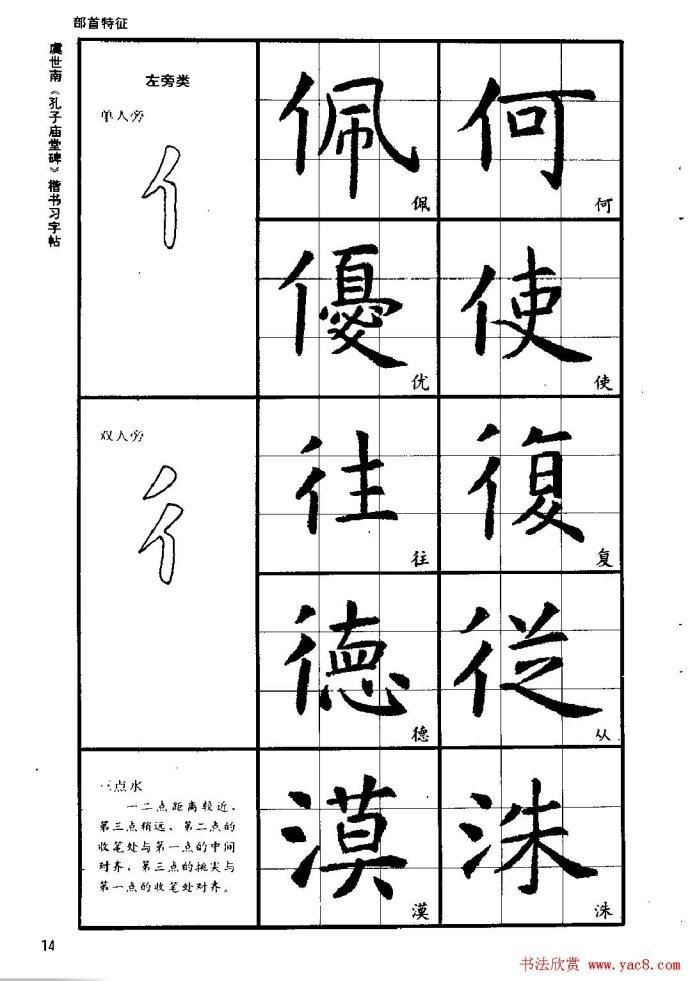 部首特征
虞世南《孔子庙堂碑》楷书习字帖
左旁类
单人旁
亻
佩
佩
何
何
優
优
使
使
双人旁
彳
往
往
復
复
德
德
従
从
三点水
一二点距离较近、
第三点稍远、第二点的
收笔处与第一点的中间
对齐，第三点的挑尖与
第一点的收笔处对齐。
漠
漠
洙
洙
14
书法欣赏 www.yac8.com